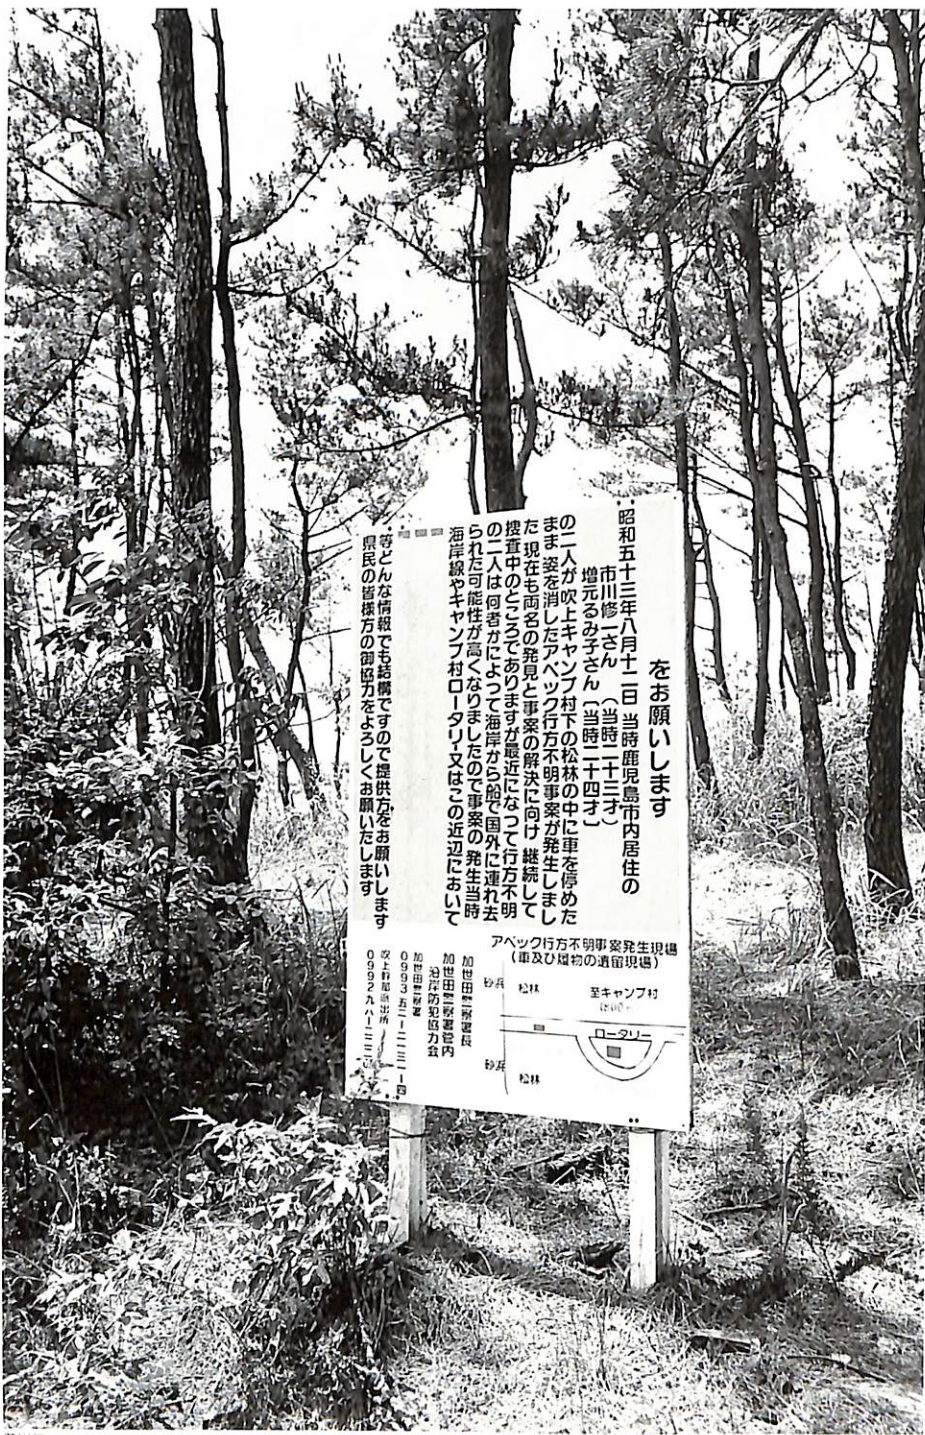 をお願いします
昭和五十三年八月十二日 当時鹿児島市内居住の
市川修一さん（当時二十三才）
増元るみ子さん〔当時二十四才〕
の二人が吹上キャンプ村下の松林の中に車を停めた
まま 姿を消したアベック行方不明事案が発生しまし
た 現在も両名の発見と事案の解決に向け 継続して
捜査中のところでありますが最近になって行方不明
の二人は何者かによって海岸から船で国外に連れ去
られた可能性が高くなりましたので事案の 発生当時
海岸線やキャンプ村ロータリー又はこの近辺において
等どんな情報でも結構ですので提供方をお願いします
県民の皆様方の御協力をよろしくお願いいたします
アベック行方不明事案発生現場
（車及び履物の遺留現場）
砂浜
松林
至キャンプ村
ロータリー
砂浜
松林
加世田警察署長
加世田警察署管内
沿岸防犯協力会
加世田警察署
吹上幹部派出所